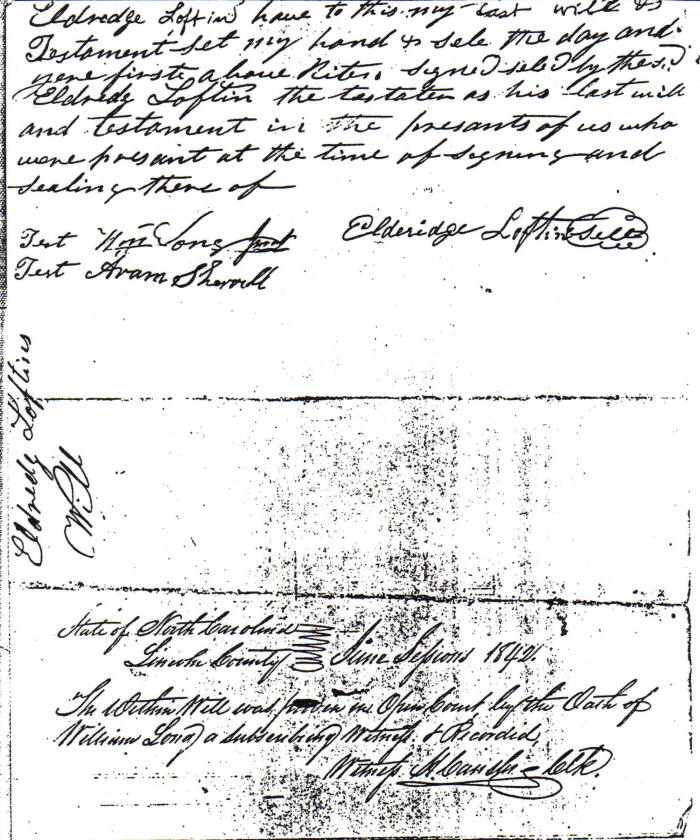 Eldredge Loftin have to this my last will &
Testament set my hand & sele the day and
were first above Riten signed seled by the sd
Eldredg Loftin the tastater as his last will
and testament in the presants of us who
were presant at the time of signing and
sealing there of
Test Wm Long Jurat
Elderidge Loftin Sele
Test Avam Sherrill
Eldredg Loftins
Will
State of North Carolina
Lincoln County
June Sessions 1842.
The Within Will was proven in Open Court by the Oath of
William Long a subscribing Witness & Recorded,
Witness Clk.